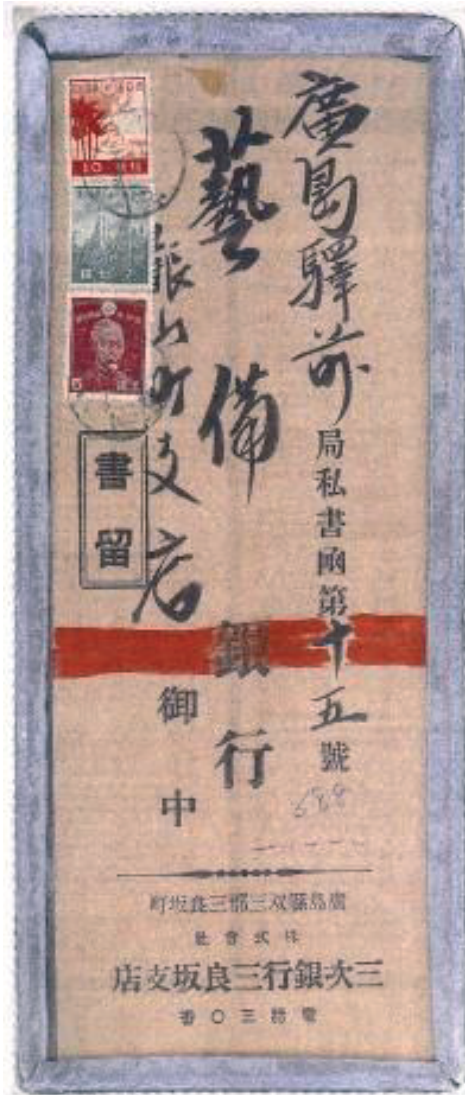 廣島驛前局私書函第十五號
藝備銀行
銀山町支店御中
書留
688
廣島縣双三郡三良坂町
株式會社
三次銀行三良坂支店
電話三〇番
10